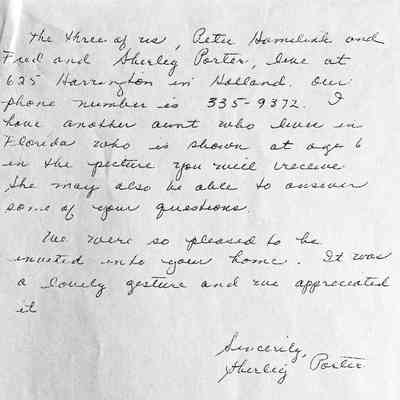 The three of us, Peter Hamelink and
Fred and Sherley Porter, live at
625 Harrington in Holland. Our
phone number is 335-9372. I
have another aunt who lives in
Florida who is shown at age 6
in the picture you will receive
She may also be able to answer
some of your questions.
We were so pleased to be
invited into your home. It was
a lovely gesture and we appreciated
it
Sincerely,
Sherley Porter